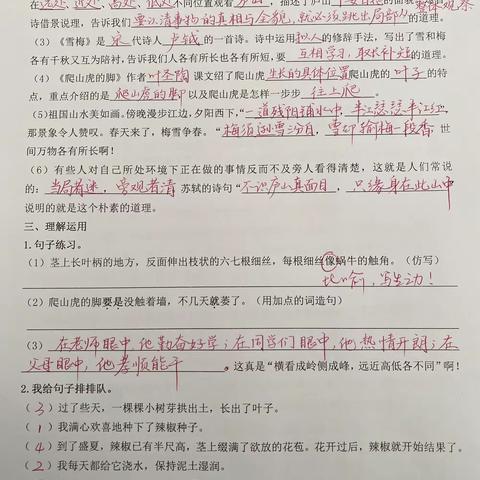 在远处、近处、高处、低处不同位置观看庐山
诗借景说理，告诉我们要认清事物的真相与全貌，就必须跳出局部的道理。
（3）《雪梅》是宋代诗人卢钺的一首诗。诗中运用拟人的修辞手法，写出了雪和梅
各有千秋又互为陪衬，告诉我们人各有所长也各有所短，要互相学习，取长补短的道理。
（4）《爬山虎的脚》作者叶圣陶课文绍了爬山虎生长的具体位置爬山虎的叶子的特
点，重点介绍的是爬山虎的脚以及爬山虎是怎样一步步往上爬
（5）祖国山水美如画。傍晚漫步江边，夕阳西下，“一道残阳铺水中，半江瑟瑟半江红，
那景象令人赞叹。春天来了，梅雪争春。“梅须逊雪三分白，雪却输梅一段香，世
间万物各有所长啊！
（6）有些人对自己所处环境下正在做的事情反而不及旁人看得清楚，这就是人们常说
的：当局者迷，旁观者清 苏轼的诗句“不识庐山真面目，只缘身在此山中
说明的就是这个朴素的道理。
三、理解运用
1.句子练习。
（1）茎上长叶柄的地方，反面伸出枝状的六七根细丝，每根细丝像蜗牛的触角。（仿写）
比喻，写生动！
（2）爬山虎的脚要是没触着墙，不几天就萎了。（用加点的词造句）
（3）在老师眼中，他勤奋好学；在同学们眼中，他热情开朗；在
父母眼中，他孝顺能干。这真是“横看成岭侧成峰，远近高低各不同”啊！
2.我给句子排排队。
（3）过了些天，一棵棵小树芽拱出土，长出了叶子。
（1）我满心欢喜地种下了辣椒种子。
（4）到了盛夏，辣椒已有半尺高，茎上缀满了欲放的花苞。花开过后，辣椒就开始结果了。
（2）我每天都给它浇水，保持泥土湿润。